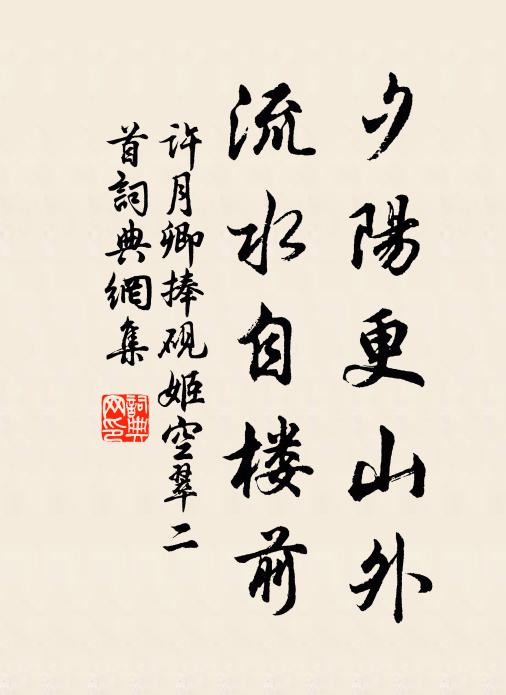 夕陽更山外
流水自楼前
许月卿捧硯姬空翠二
首詞典網集
詞典
网印